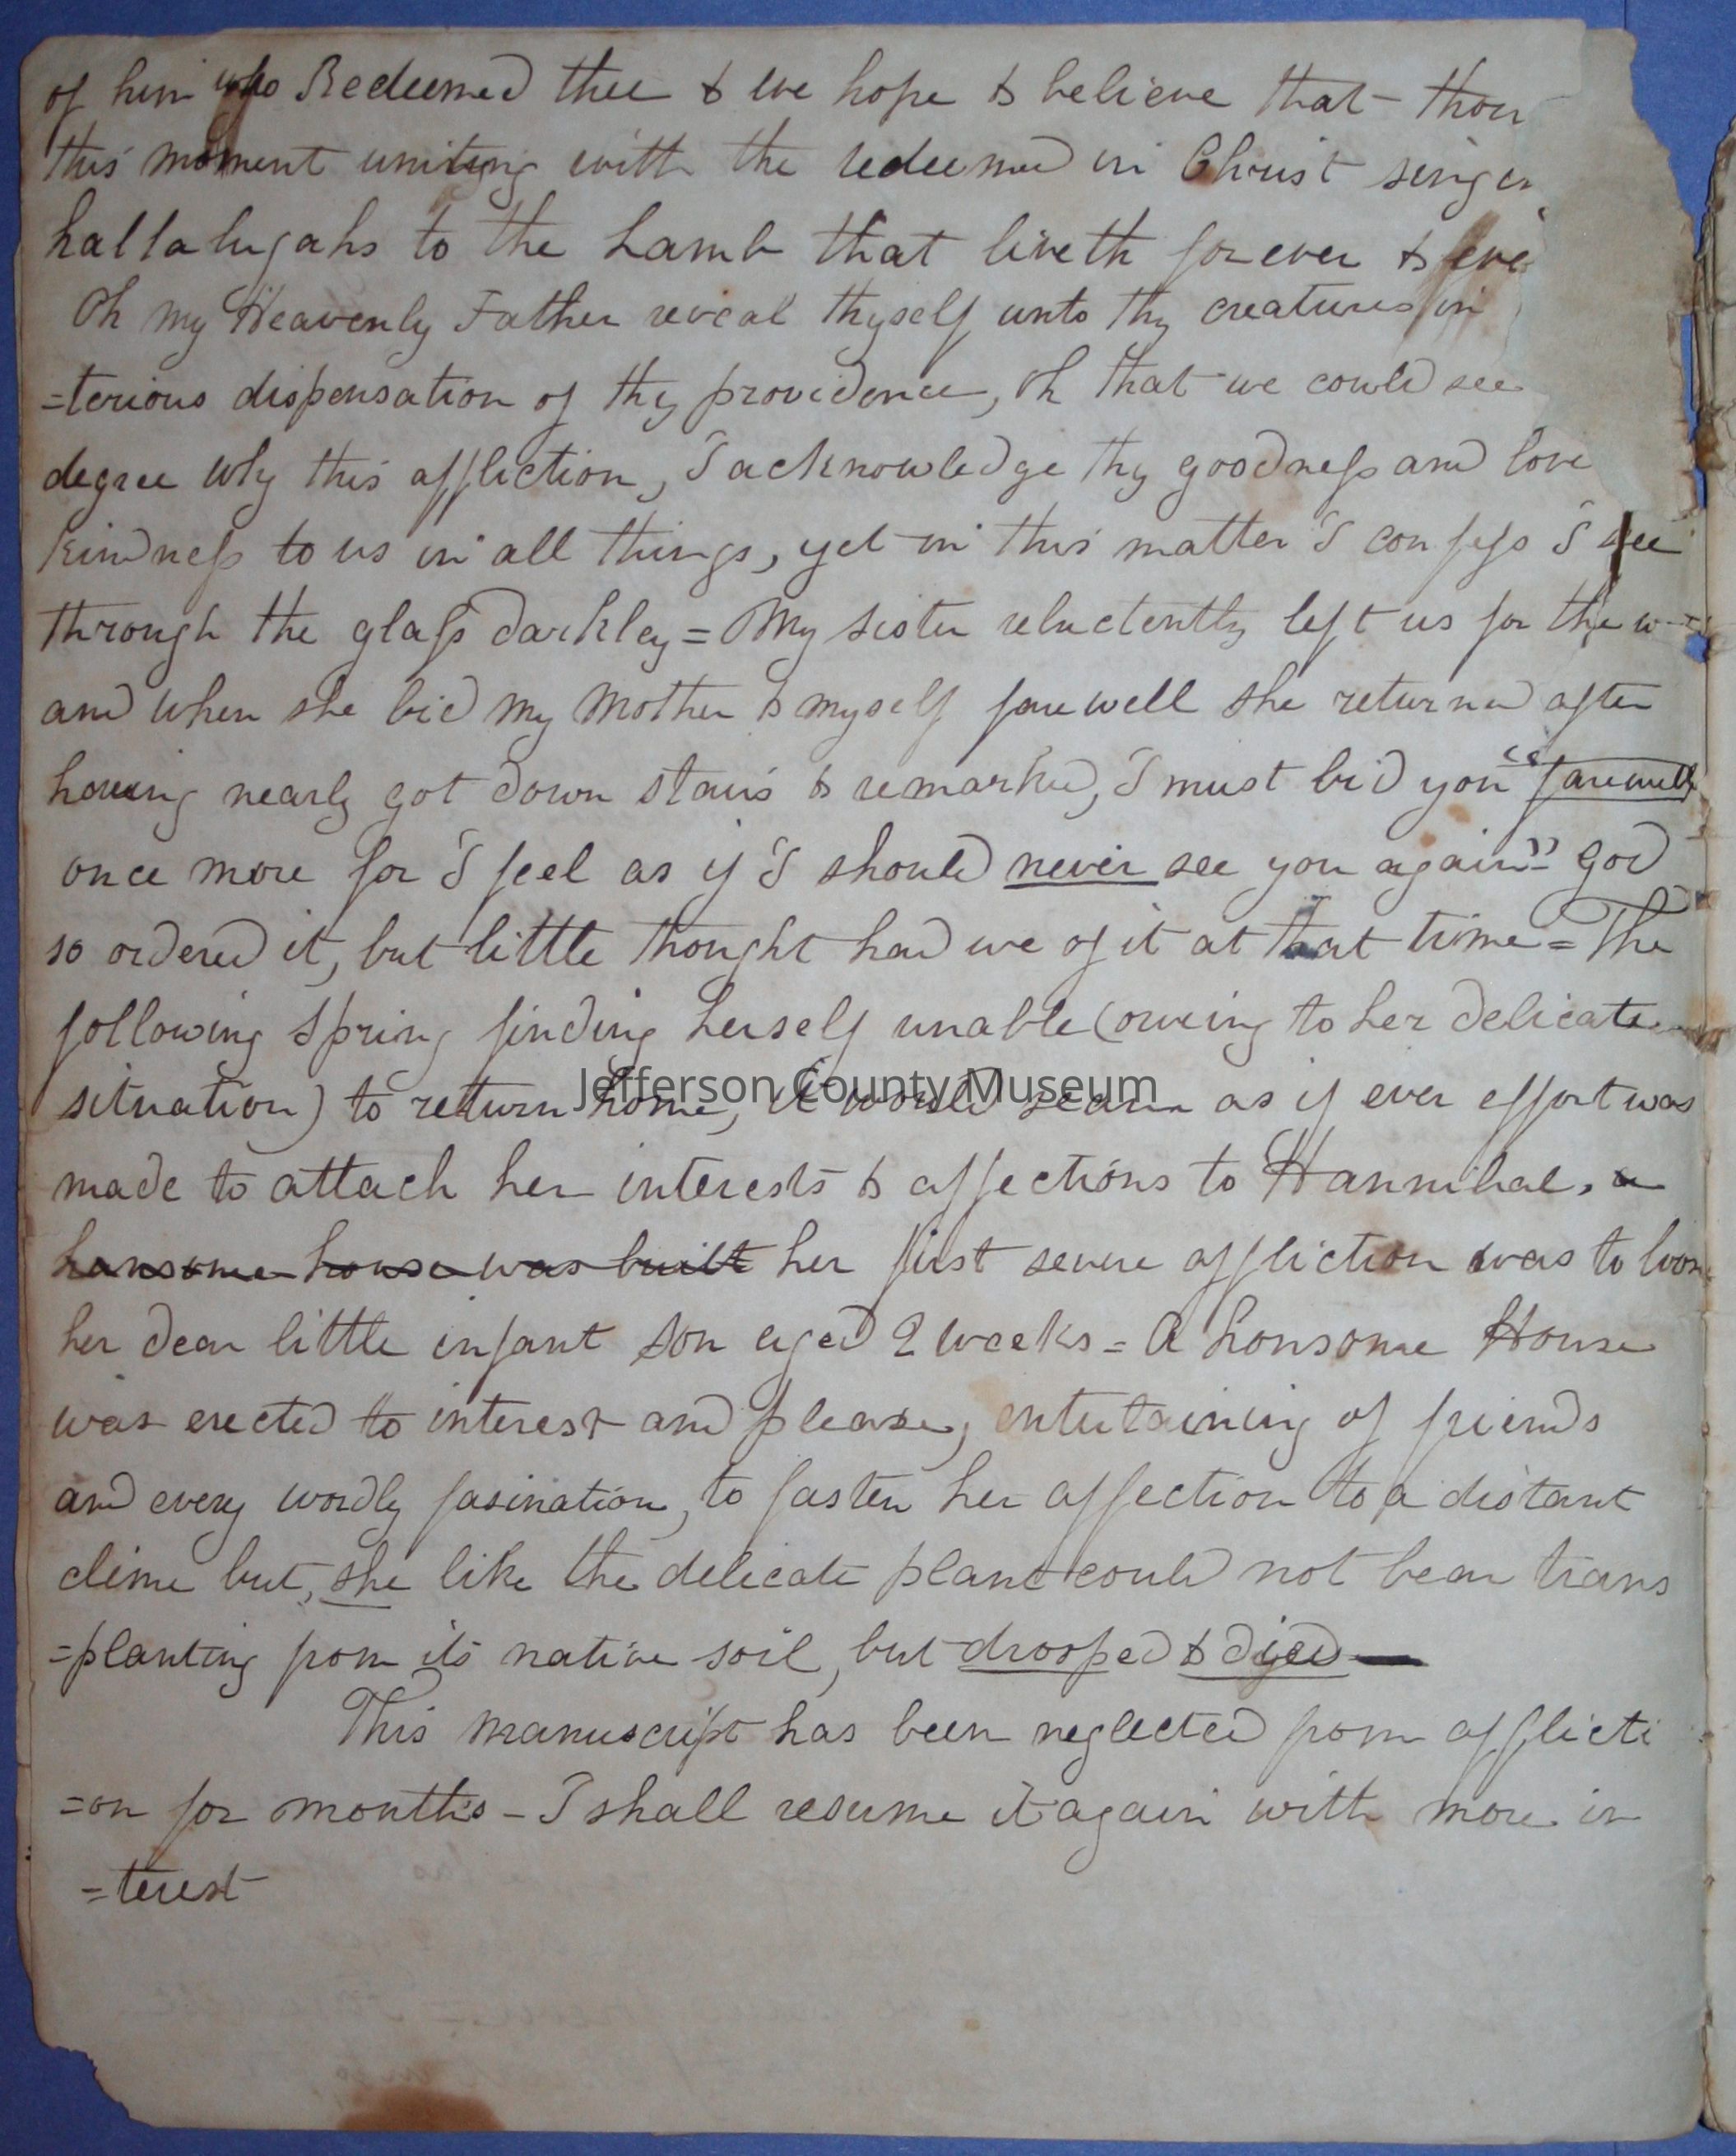 of him who Redeemed thee & we hope & believe that thou
this moment uniting with the redeemed in Christ singin
hallalugahs to the Lamb that liveth forever & eve
Oh my Heavenly Father reveal thyself unto thy creatures in
=terious dispensation of thy providence, Oh that we could see
degree why this affliction, I acknowledge thy goodness and love
kindness to us in all things, yet in this matter I confess I see
through the glass darkley = My sister reluctently left us for the w
and when she bid my Mother & myself farewell she returned after
having nearly got down stairs & remarked, I must bid you "farewell
once more for I feel as if I should never see you again" = God
so ordered it, but little thought had we of it at that time = The
following Spring finding herself unable (owing to her delicate
situation) to return home, it would seam as if ever effort was
made to attach her interests & affections to Hannibal, a
hansome house was built her first severe affliction was to loose
her dear little infant son aged 2 weeks = A hansome House
was erected to interest and please, entertaining of friends
and every wordly fasination, to fasten her affection to a distant
clime but, she like the delicate plant could not bear trans
=planting from its native soil, but drooped & dyed —
This manuscript has been neglected from afflicti
=on for months – I shall resume it again with more in
=terest
Jefferson County Museum